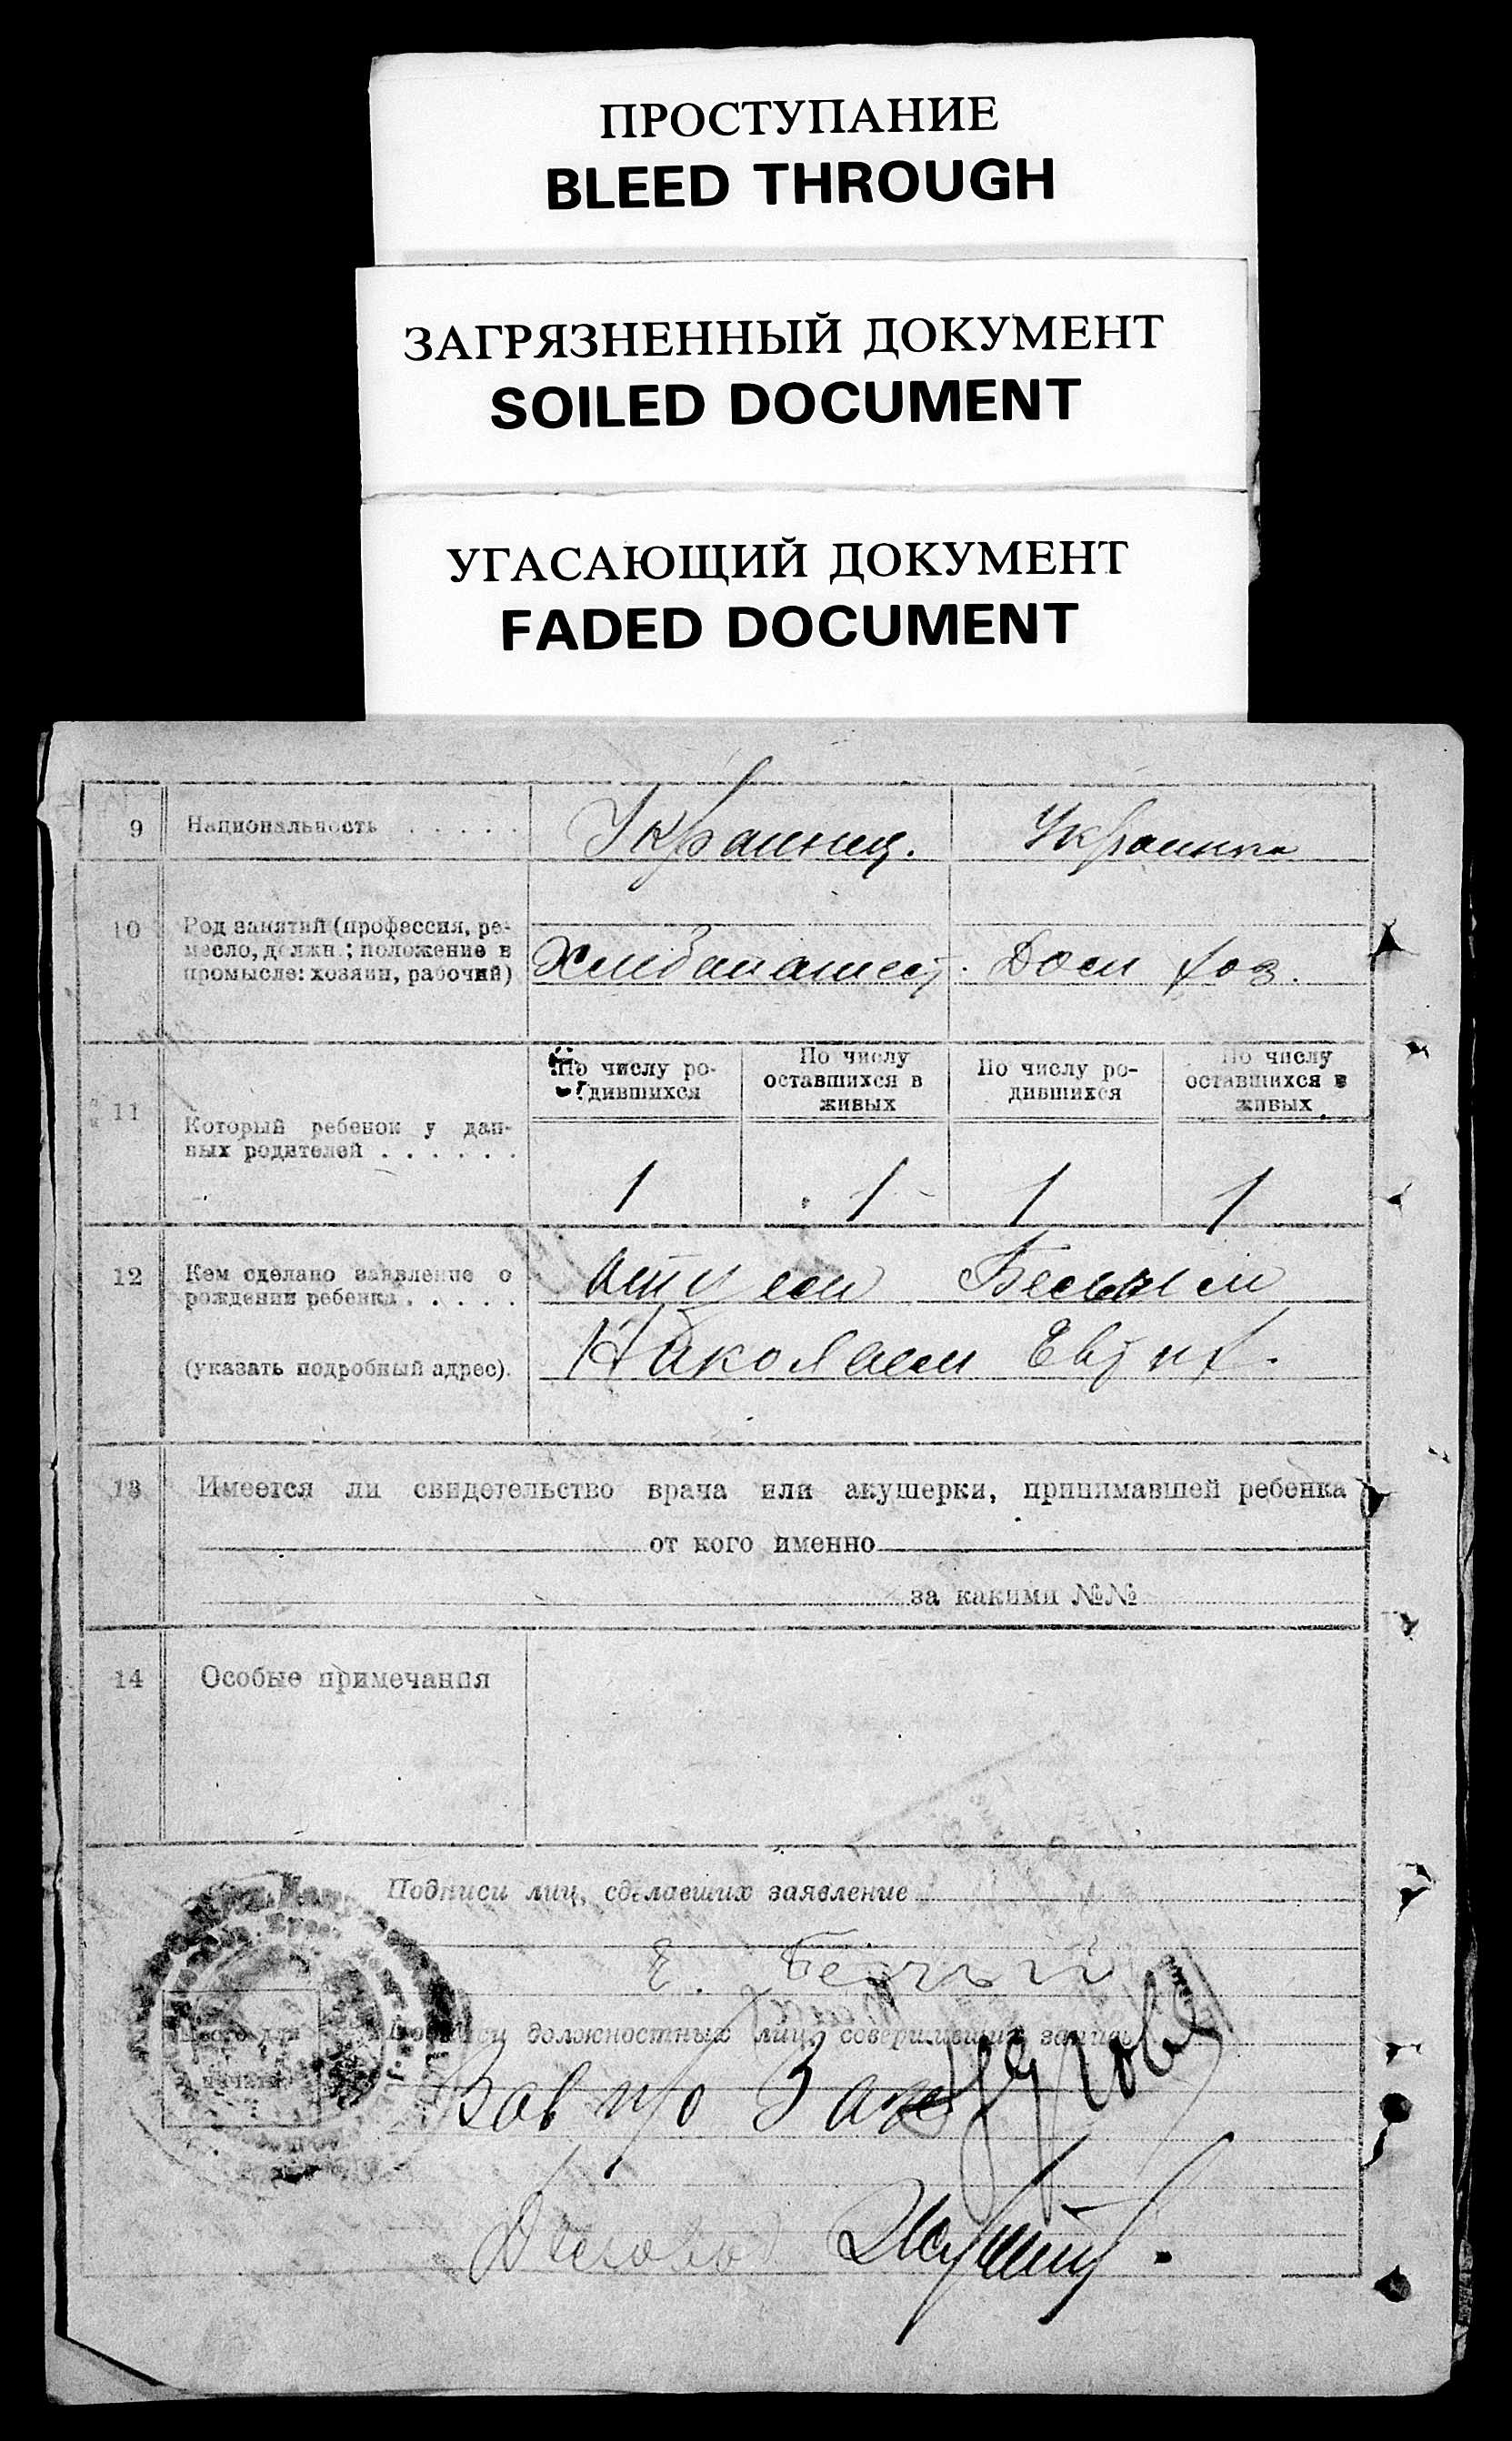 ПРОСТУПАНИЕ
BLEED THROUGH
ЗАГРЯЗНЕННЫЙ ДОКУМЕНТ
SOILED DOCUMENT
УГАСАЮЩИЙ ДОКУМЕНТ
FADED DOCUMENT
9 Национальность . . . . . Украинец. Украинка
10 Род занятий (профессия, ре-
месло, должн.; положение в
промысле: хозяин, рабочий)
Дом хоз.
По числу ро-
дившихся
По числу
оставшихся в
живых
По числу ро-
дившихся
По числу
оставшихся в
живых
11 Который ребенок у дан-
ных родителей . . . . . .
1 1 1 1
12 Кем сделано заявление о
рождении ребенка . . . . .
отцем
(указать подробный адрес).
Николаем Евтих.
13 Имеется ли свидетельство врача или акушерки, принимавшей ребенка
от кого именно
за какими №№
14 Особые примечания
Подписи лиц, сделавших заявление
Подписи должностных лиц, совершивших запись
Место для
печати
Зав п/о Загс